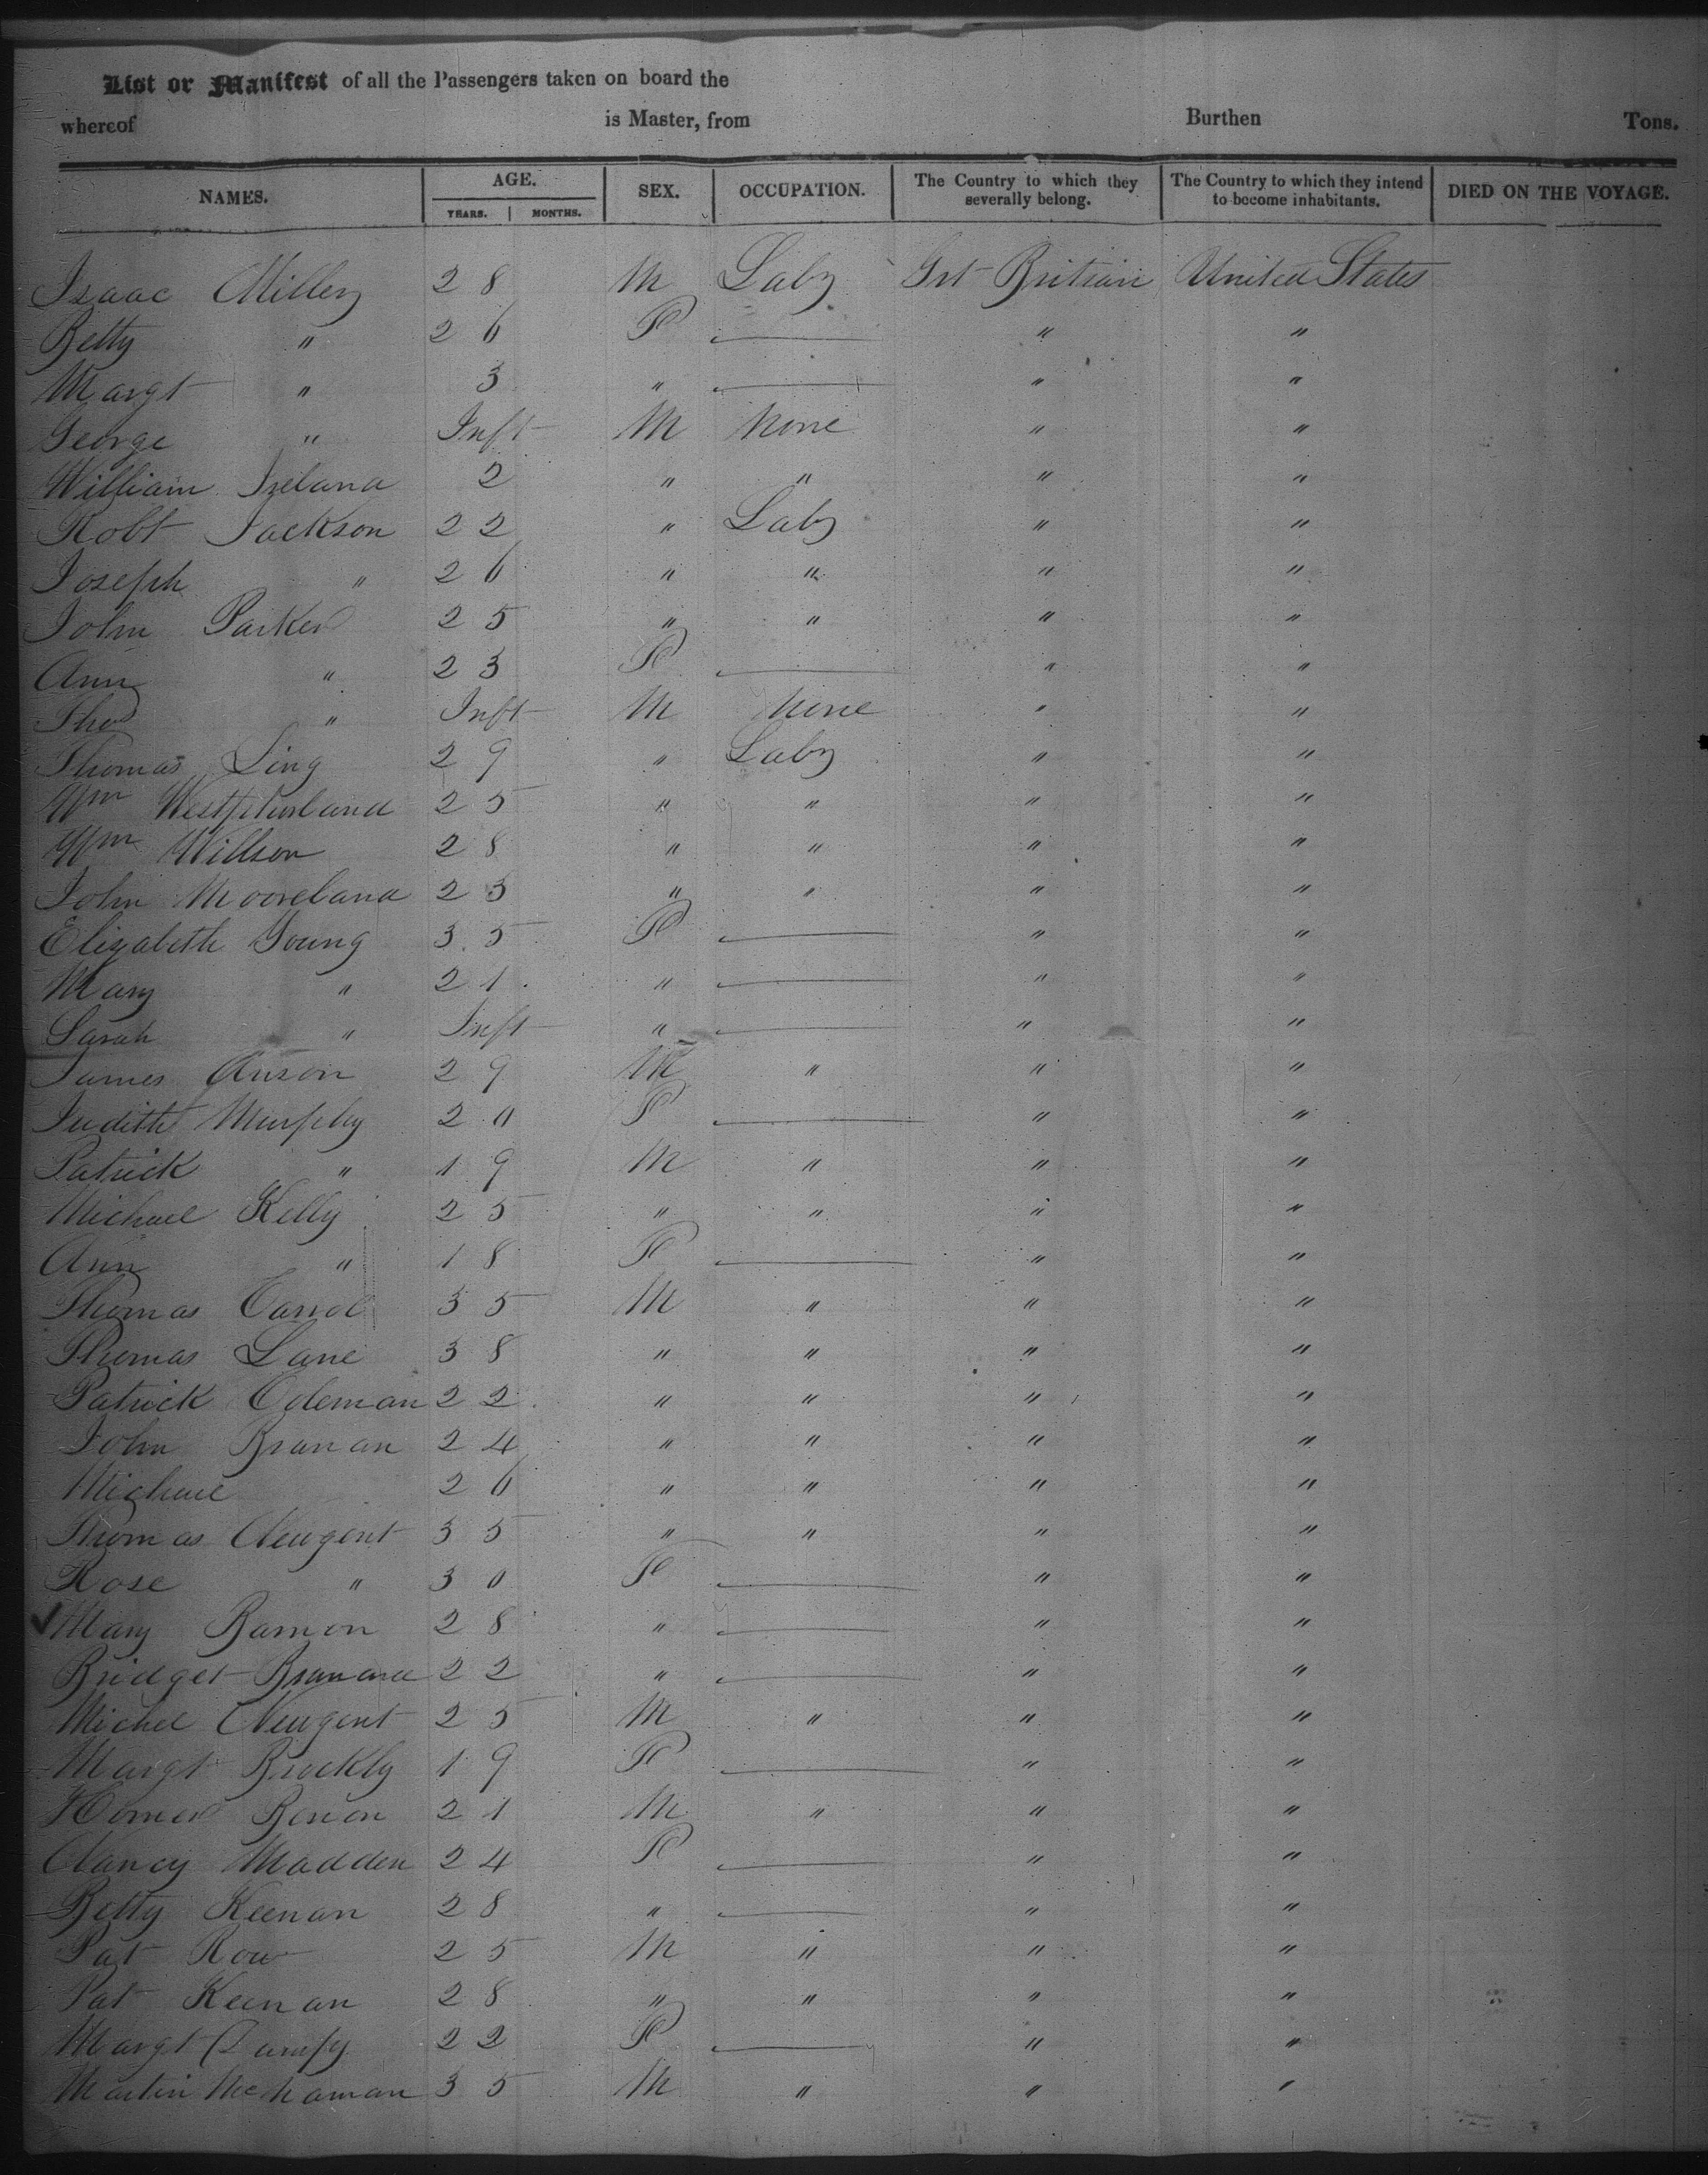 List or Manifest of all the Passengers taken on board the
whereof is Master, from Burthen Tons.
NAMES. AGE. SEX. OCCUPATION. The Country to which they severally belong. The Country to which they intend to become inhabitants. DIED ON THE VOYAGE.
YEARS. MONTHS.
Isaac Miller 28 M Labr Grt Britian United States
Betty " 26 F — " "
Margt " 3 " — " "
George " Inft M None " "
William Ireland 2 " " " "
Robt Jackson 22 " Labr " "
Joseph " 26 " " " "
John Parker 25 " " " "
Ann " 23 F — " "
Thos " Inft M None " "
Thomas Ling 29 " Labr " "
Wm 25 " " " "
Wm Willson 28 " " " "
John Mooreland 23 " " " "
Elizabeth Young 35 F — " "
Mary " 21 " — " "
Sarah " Inft " — " "
James Anson 29 M " " "
Judith Murphy 20 F — " "
Patrick " 19 M " " "
Michael Kelly 25 " " " "
Ann " 18 F — " "
Thomas Carrol 35 M " " "
Thomas Lane 38 " " " "
Patrick Coleman 22 " " " "
John Branan 24 " " " "
Michael 26 " " " "
Thomas Neugent 35 " " " "
Rose " 30 F — " "
Mary 28 " — " "
Bridget 22 " — " "
Michel Neugent 25 M " " "
Margt Brockly 19 F — " "
21 M " " "
Nancy Madden 24 F — " "
Betty Keenan 28 " — " "
Pat Row 25 M " " "
Pat Keenan 28 " " " "
Margt 22 F — " "
Martin McNaman 35 M " " "